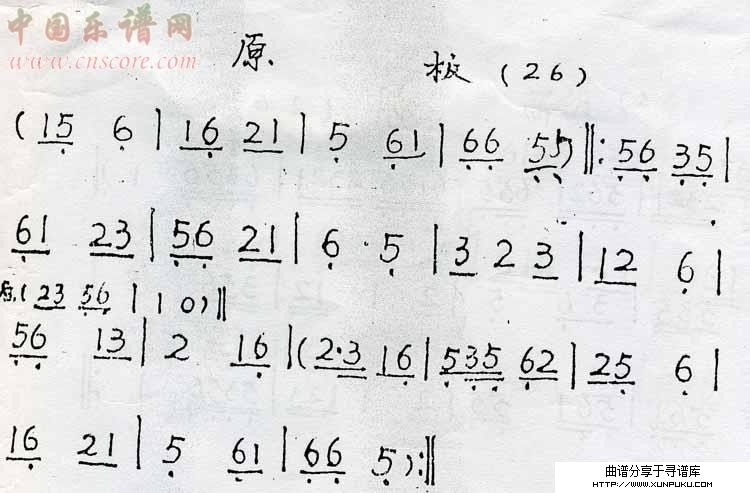 中国乐谱网
www.cnscore.com
原 板 (26)
(15 6 | 16 21 | 5 61 | 66 55) ‖: 56 35 |
61 23 | 56 21 | 6 · 5 | 3 2 3 | 12 6 |
(23 56 | 1 0) ‖
56 13 | 2 16 | (2·3 16 | 535 62 | 25 6 |
16 21 | 5 61 | 66 5) :‖
曲谱分享于寻谱库
HTTP://WWW.XUNPUKU.COM